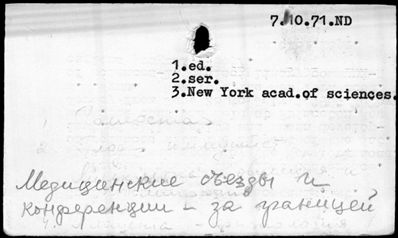 7.10.71.ND
1.ed.
2.ser.
3.New York acad.of sciences.
Медицинские съезды и
конференции - за границей